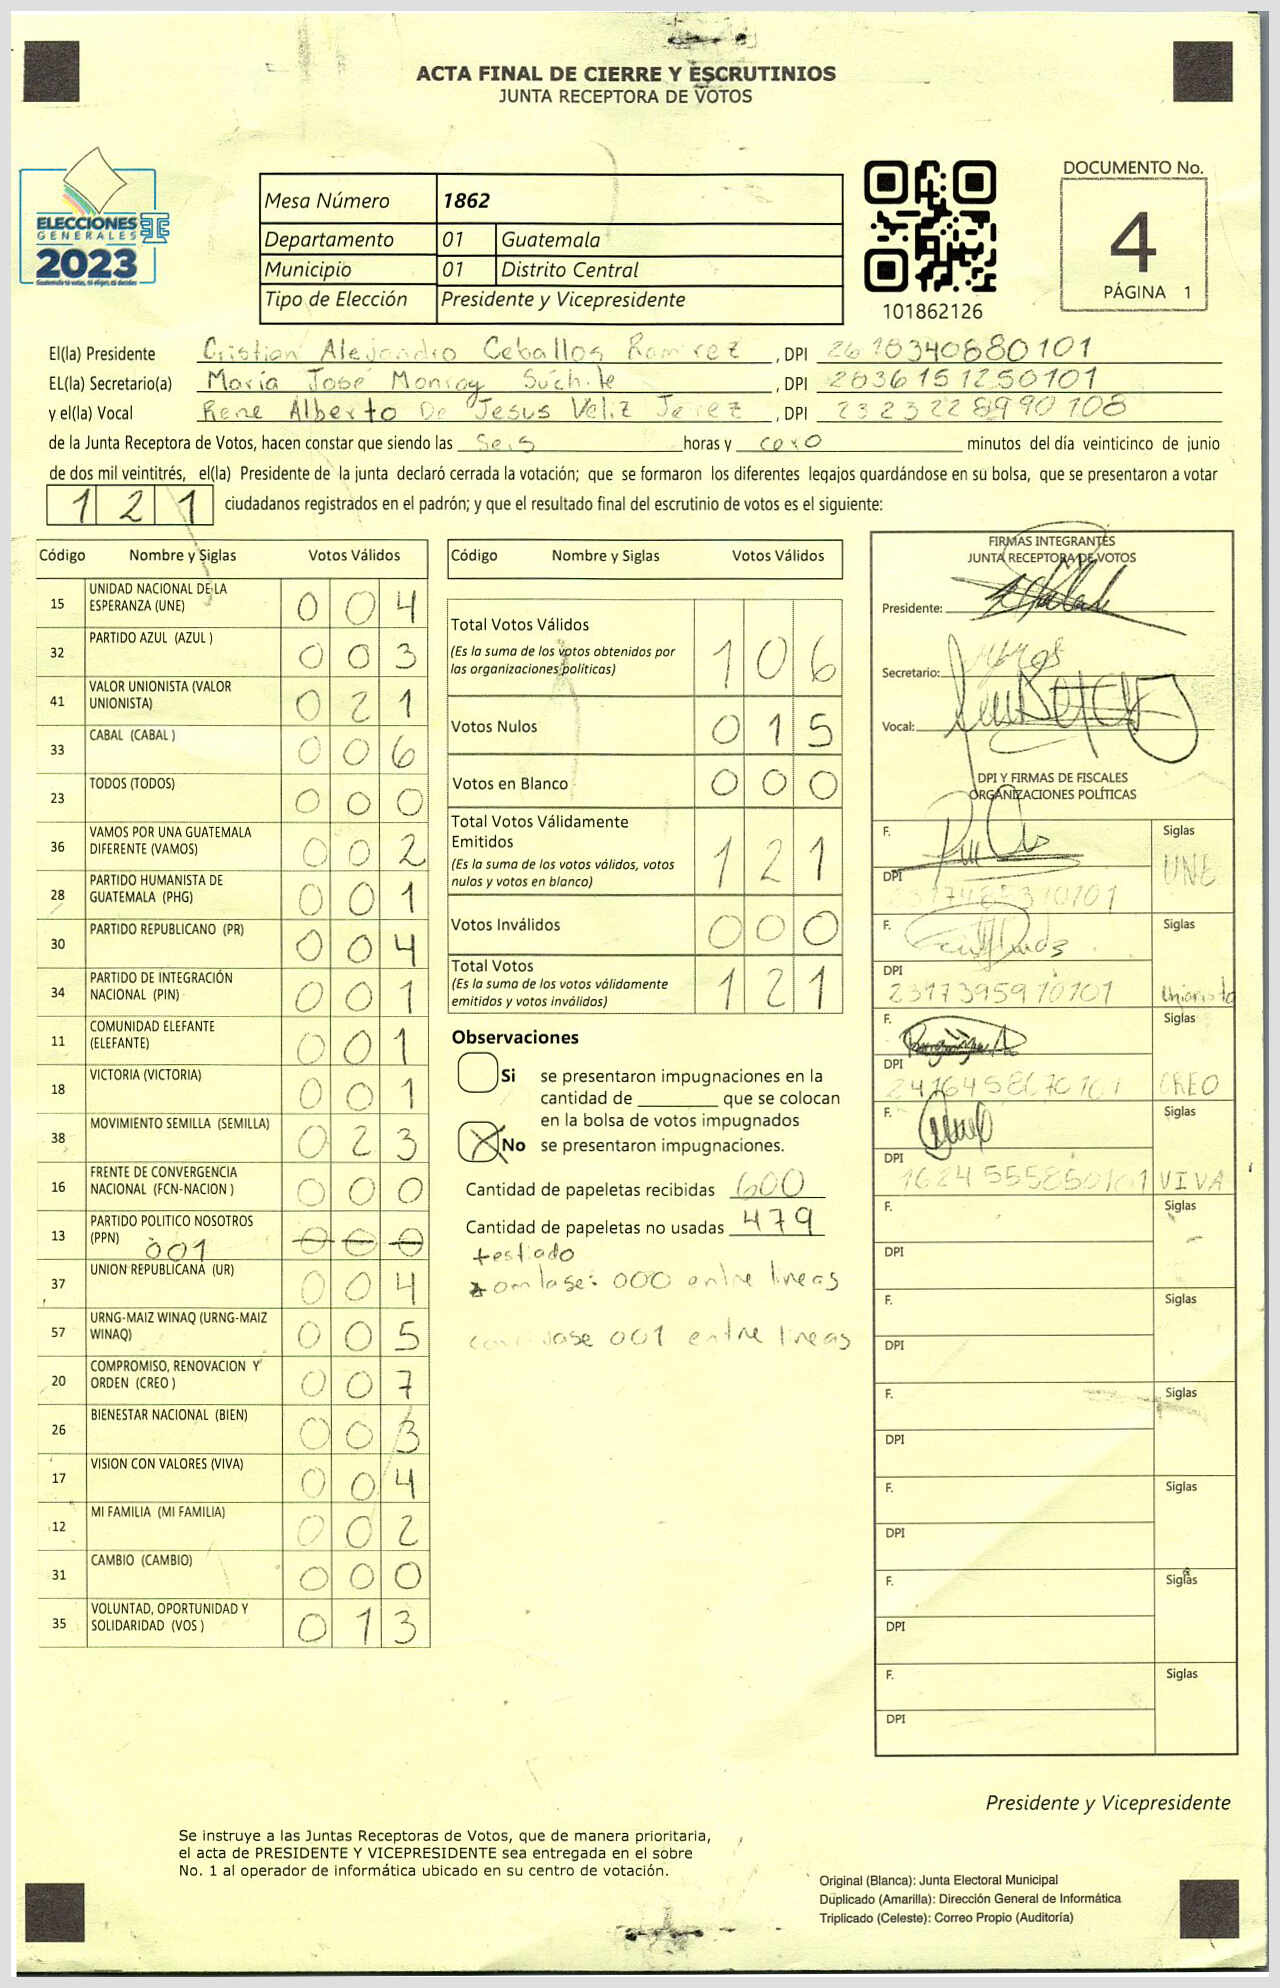 ACTA FINAL DE CIERRE Y ESCRUTINIOS
JUNTA RECEPTORA DE VOTOS
ELECCIONES
GENERALES
2023
Mesa Número 1862
Departamento 01 Guatemala
Municipio 01 Distrito Central
Tipo de Elección Presidente y Vicepresidente
101862126
DOCUMENTO No.
4
PÁGINA 1
El(la) Presidente Cristian Alejandro Ceballos Ramirez , DPI 2618340680101
EL(la) Secretario(a) María José Monroy Súchite , DPI 2836151250101
y el(la) Vocal Rene Alberto De Jesus Veliz Jerez , DPI 2323228990108
de la Junta Receptora de Votos, hacen constar que siendo las seis horas y cero minutos del día veinticinco de junio
de dos mil veintitrés, el(la) Presidente de la junta declaró cerrada la votación; que se formaron los diferentes legajos quardándose en su bolsa, que se presentaron a votar
121 ciudadanos registrados en el padrón; y que el resultado final del escrutinio de votos es el siguiente:
Código Nombre y Siglas Votos Válidos
15 UNIDAD NACIONAL DE LA ESPERANZA (UNE) 004
32 PARTIDO AZUL (AZUL ) 003
41 VALOR UNIONISTA (VALOR UNIONISTA) 021
33 CABAL (CABAL ) 006
23 TODOS (TODOS) 000
36 VAMOS POR UNA GUATEMALA DIFERENTE (VAMOS) 002
28 PARTIDO HUMANISTA DE GUATEMALA (PHG) 001
30 PARTIDO REPUBLICANO (PR) 004
34 PARTIDO DE INTEGRACIÓN NACIONAL (PIN) 001
11 COMUNIDAD ELEFANTE (ELEFANTE) 001
18 VICTORIA (VICTORIA) 001
38 MOVIMIENTO SEMILLA (SEMILLA) 023
16 FRENTE DE CONVERGENCIA NACIONAL (FCN-NACION ) 000
13 PARTIDO POLITICO NOSOTROS (PPN) 001 000
37 UNION REPUBLICANA (UR) 004
57 URNG-MAIZ WINAQ (URNG-MAIZ WINAQ) 005
20 COMPROMISO, RENOVACION Y ORDEN (CREO ) 007
26 BIENESTAR NACIONAL (BIEN) 003
17 VISION CON VALORES (VIVA) 004
12 MI FAMILIA (MI FAMILIA) 002
31 CAMBIO (CAMBIO) 000
35 VOLUNTAD, OPORTUNIDAD Y SOLIDARIDAD (VOS ) 013
Código Nombre y Siglas Votos Válidos
Total Votos Válidos 106
(Es la suma de los votos obtenidos por
las organizaciones políticas)
Votos Nulos 015
Votos en Blanco 000
Total Votos Válidamente
Emitidos 121
(Es la suma de los votos válidos, votos
nulos y votos en blanco)
Votos Inválidos 000
Total Votos 121
(Es la suma de los votos válidamente
emitidos y votos inválidos)
Observaciones
Si se presentaron impugnaciones en la
cantidad de ________ que se colocan
en la bolsa de votos impugnados
X No se presentaron impugnaciones.
Cantidad de papeletas recibidas 600
Cantidad de papeletas no usadas 479
testado
omitase: 000 entre lineas
001 entre lineas
FIRMAS INTEGRANTES
JUNTA RECEPTORA DE VOTOS
Presidente:
Secretario:
Vocal:
DPI Y FIRMAS DE FISCALES
ORGANIZACIONES POLÍTICAS
F. Siglas
DPI 2317485310101 UNE
F. Siglas
DPI 2317395910101 Unionista
F. Siglas
DPI 2416458670101 CREO
F. Siglas
DPI 1624555850101 VIVA
F. Siglas
DPI
F. Siglas
DPI
F. Siglas
DPI
F. Siglas
DPI
F. Siglas
DPI
F. Siglas
DPI
Presidente y Vicepresidente
Se instruye a las Juntas Receptoras de Votos, que de manera prioritaria,
el acta de PRESIDENTE Y VICEPRESIDENTE sea entregada en el sobre
No. 1 al operador de informática ubicado en su centro de votación.
Original (Blanca): Junta Electoral Municipal
Duplicado (Amarilla): Dirección General de Informática
Triplicado (Celeste): Correo Propio (Auditoría)